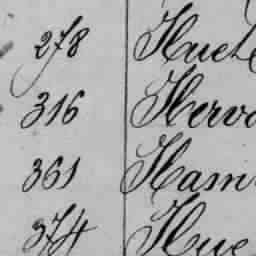 278 Huet
316 Herv
361 Ham
374 Hue